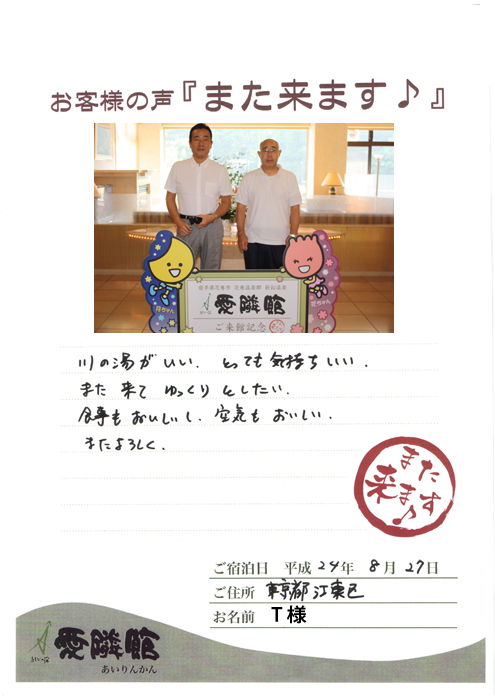 お客様の声『また来ます♪』
岩手県花巻市 花巻温泉郷 新鉛温泉
愛隣館
ご来館記念
川の湯がいい、とっても気持ちいい。
また 来て ゆっくり としたい。
食事もおいしいし、空気もおいしい。
またよろしく。
また
来ます♪
ご宿泊日 平成 24年 8月 27日
ご住所 東京都江東区
お名前 T様
愛隣館
あいりんかん